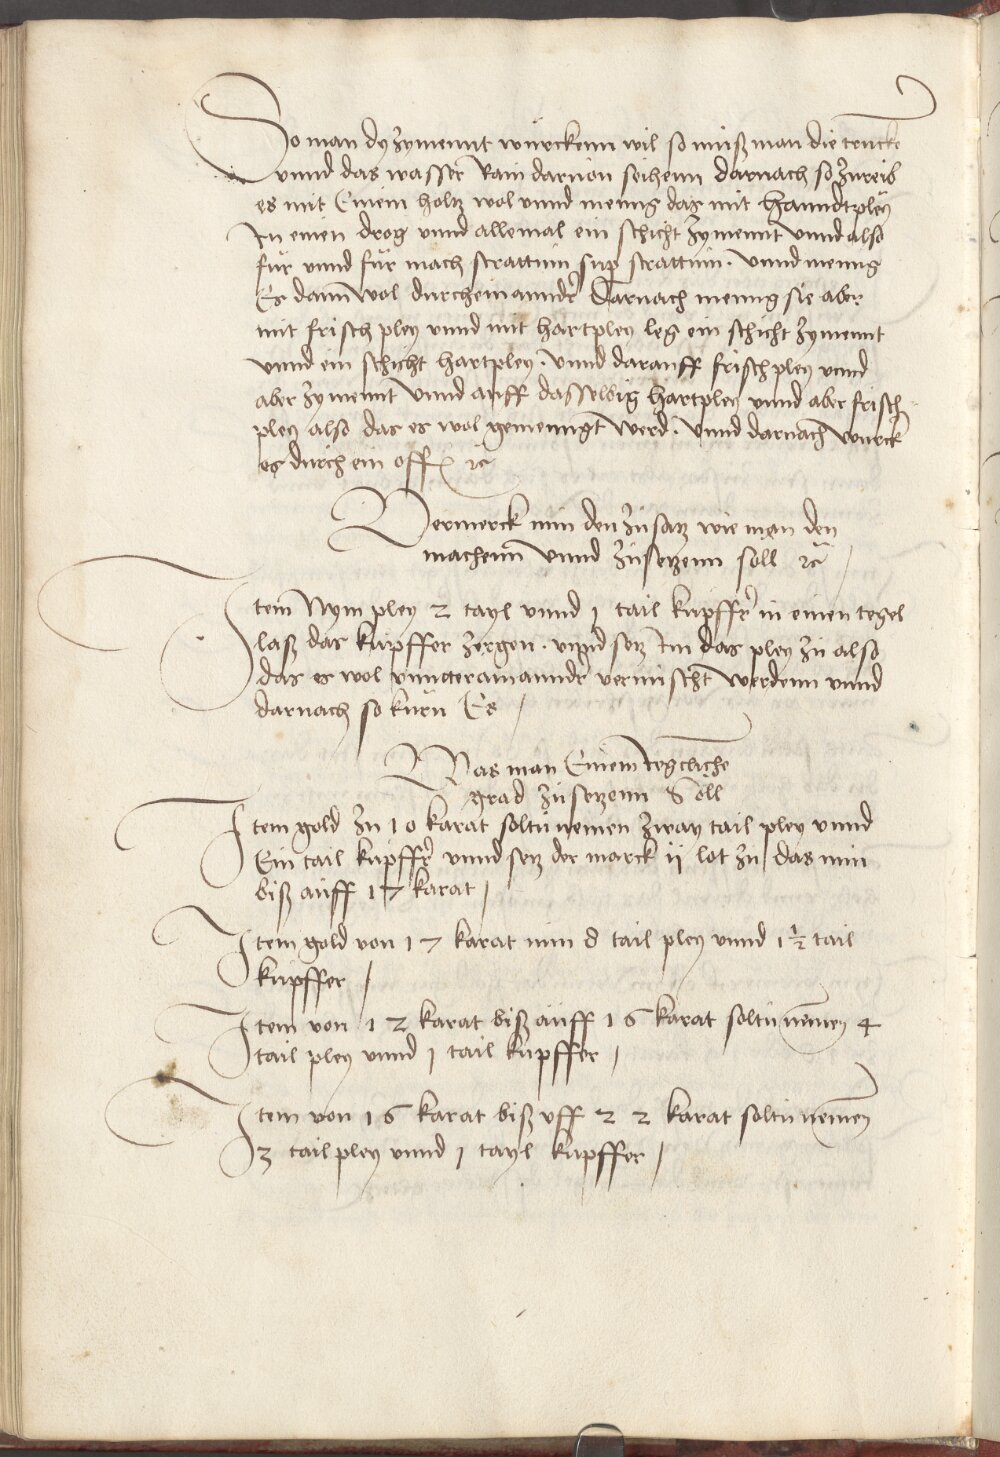 So man dy zyment würckenn wil so muß man die trucke
vnnd das wasser Rain daruon seihenn darnach so zureib
es mit Einem holtz wol vnnd meng das mit hanndtpley
In einen drog vnnd allemal ein schicht zyment vnnd also
für vnnd für mach strattum sup strattum. vnnd meng
Es dann wol durcheinannder Darnach meng sie aber
mit frisch pley vnnd mit hartpley leg ein schicht zyment
vnnd ein schicht hartpley. vnnd darauff frischpley vnnd
aber zyment vnnd auff dasselbig hartpley vnnd aber frisch
pley also das es wol gemenngt werd. vnnd darnach würck
es durch ein off rc
Vermerck nun den zusatz wie man den
machenn vnnd zusetzenn soll rc
Item Nym pley 2 tayl vnnd 1 tail kupffer in einen tegel
laß das kupffer zergen. vnnd setz Im das pley zu also
das es wol vnntteramannder vermischt werdenn vnnd
darnach so kürn Es
Was man Einem Iegcliche
grad zusetzenn Söll
Item gold zu 10 karat soltu nemen zway tail pley vnnd
Ein tail kupffer vnnd setz der marck ij lot zu das nun
biß auff 17 karat
Item gold von 17 karat nim 8 tail pley vnnd 1 1/2 tail
kupffer
Item von 12 karat biß auff 16 karat soltu nemen 4
tail pley vnnd 1 tail kupffer
Item von 16 karat biß vff 22 karat soltu nemen
3 tail pley vnnd 1 tayl kupffer